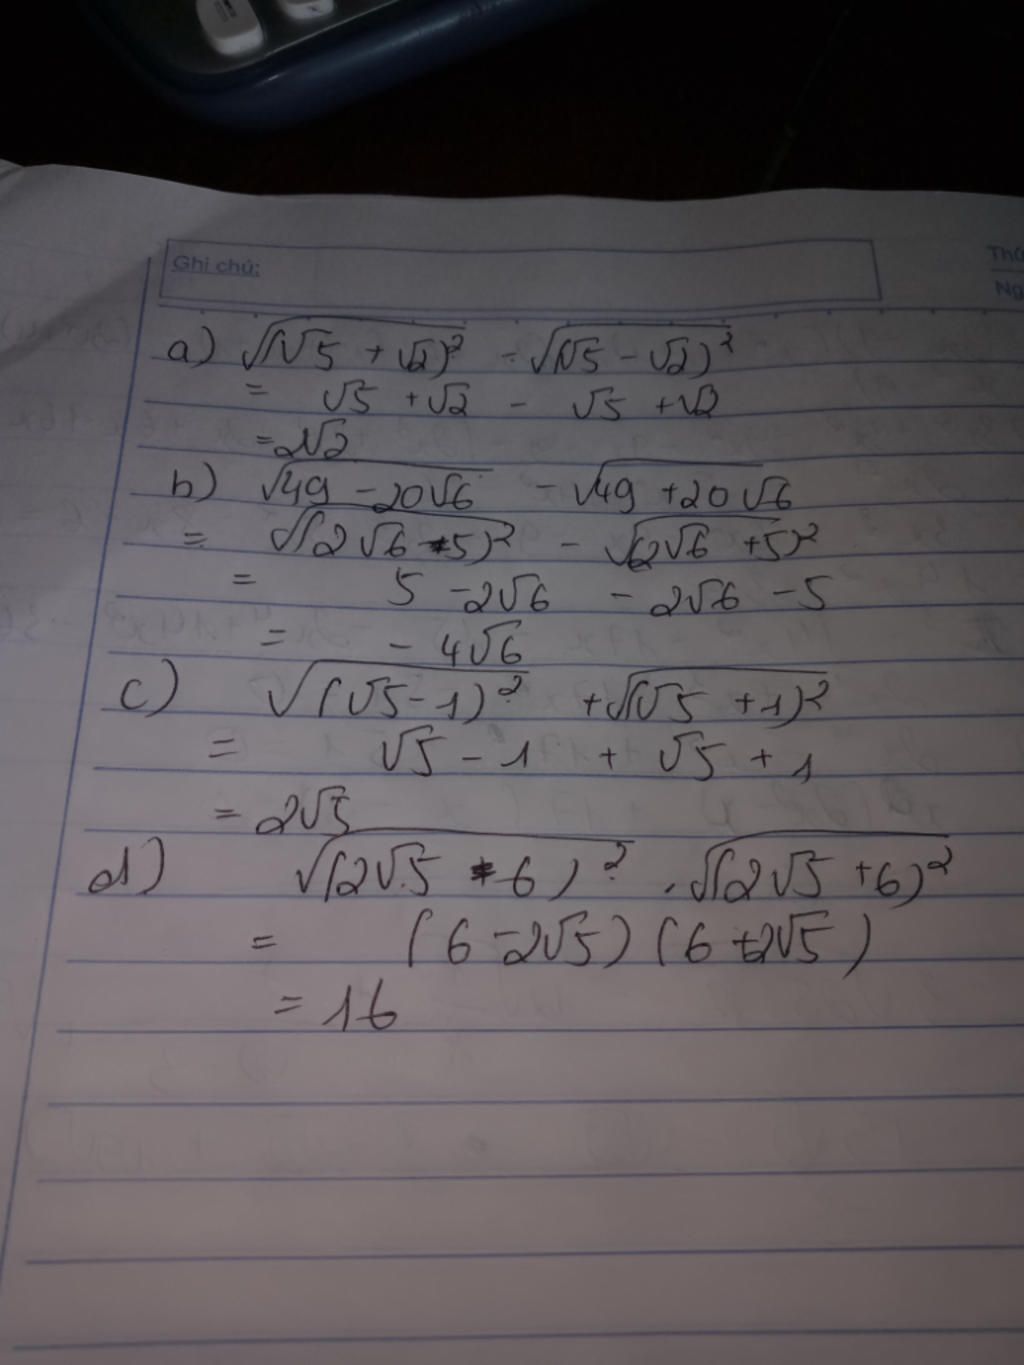 Ghi chú:
Thứ
Ng
a) √(√5 + √2)² - √(√5 - √2)²
= √5 + √2 - √5 + √2
= 2√2
b) √49 - 20√6 - √49 + 20√6
= √(2√6 - 5)² - √(2√6 + 5)²
= 5 - 2√6 - 2√6 - 5
= - 4√6
c) √(√5 - 1)² + √(√5 + 1)²
= √5 - 1 + √5 + 1
= 2√5
d) √(2√5 - 6)² . √(2√5 + 6)²
= (6 - 2√5) (6 + 2√5)
= 16